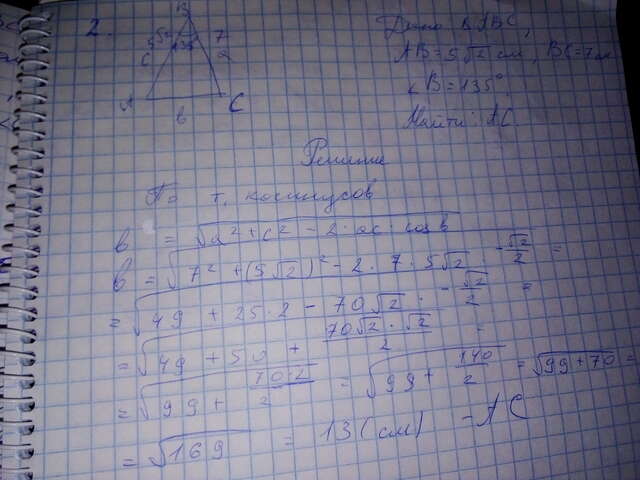 2.
B
5√2
7
135°
c
a
A
C
b
Дано: ΔABC,
AB=5√2 см, BC=7см
∠B=135°.
Найти: AC.
Решение
По т. косинусов
b = √a² + c² - 2·ac·cos b
b = √7² + (5√2)² - 2·7·5√2 · -√2/2 =
= √49 + 25·2 - 70√2 · -√2/2 =
= √49 + 50 + 70√2·√2/2 =
= √99 + 70·2/2 = √99 + 140/2 = √99+70 =
= √169 = 13 (см) - AC